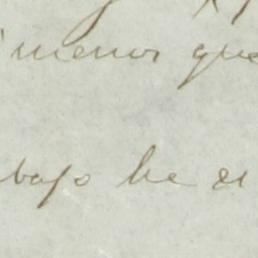 menos que
bajo he